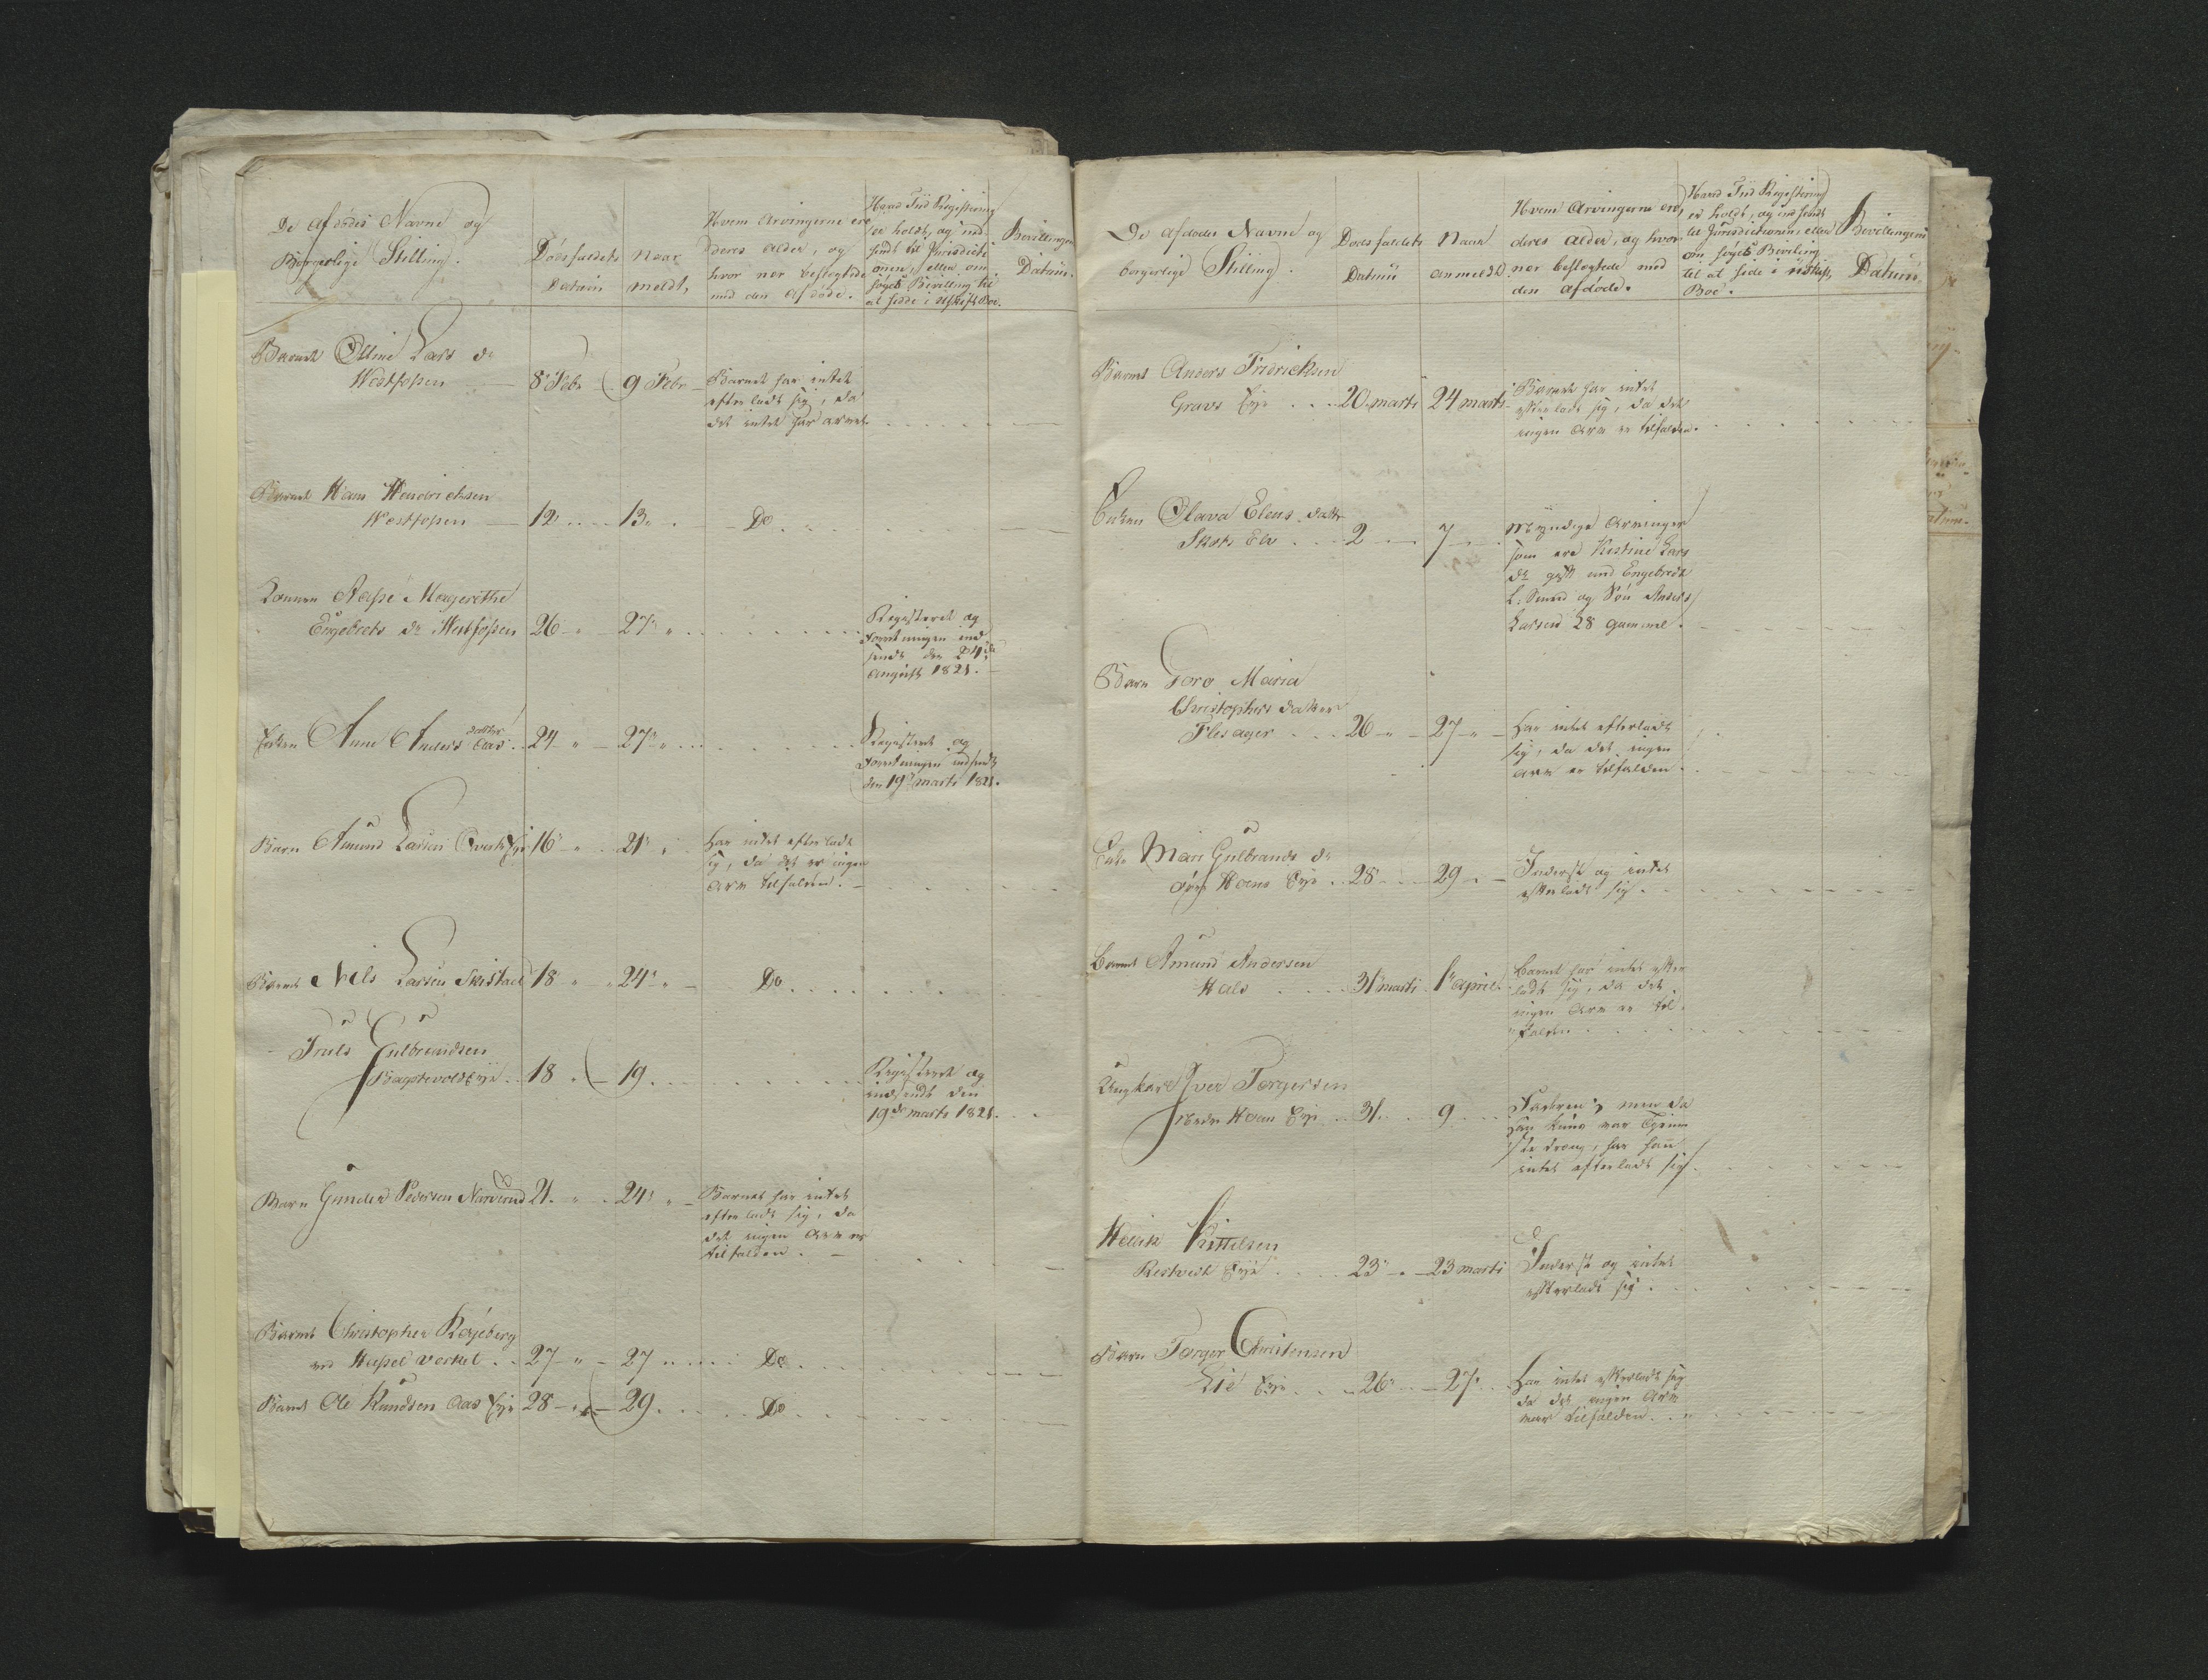 De afdödes Navne og
Borgerlige Stilling.
Dödsfaldets
Datum
Naar
meldt,
Hvem Arvingerne ere
deres alder, og
hvor nær beslegtede
med den Afdöde.
Hvad Tiid Registering
er holdt, og ind-
sendt til Jurisdicti
onen, eller om
søgt Bevilling til
at sidde i Uskift Boe.
Bevillingens
Datum.
Barnet Olline Lars dr
Westfossen 8 Febr 9 Febr
Barnet har intet
efterladt sig, da
det intet har arvet.
Barnet Hans Hendrichsen
Westfossen 12 13 Do
Konen Aasse Margrethe
Engebrets dr Westfossen 26 27
Registeret og
Forretningen ind
sendt den 24de
August 1821.
Enken Anne Anders datter Aas 24 27
Registeret og
Forretningen indsendt
den 19 marts 1821.
Barn Amund Larsen Eye 16 21
Har intet efterladt
sig, da det er ingen
Arv tilfalden.
Barnet Nils Larsen Skistad 18 24 Do
Truls Gulbrandsen
Eye 18 19
Registeret og
indsendt den
19de marts 1821.
Barn Gunder Pedersen 21 24
Barnet har intet
efterladt sig, da
det ingen Arv er
tilfalden.
Barnet Christopher Røyeberg
ved Hassel verket 27 27 Do
Barnet Ole Knudsen Aas Eye 28 29 Do
De afdødes Navne og
borgerlige Stilling.
Dødsfaldets
Datum
Naar
anmeldt
Hvem Arvingerne ere,
deres alder, og hvor
nær beslegtede med
den afdøde.
Hvad Tiid Registering
er holdt, og indsendt
til Jurisdictionen, eller
om søgt Bevilling
til at side i uskift
Boe.
Bevillingens
Datum.
Barnet Anders Fridrichsen
Gravs Eye 20 marts 24 marts
Barnet har intet
efterladt sig, da det
ingen Arv er tilfalden.
Enken Olava Elens datter
Skots Elv 2 7
Myndige Arvinger
som ere Kirstine Lars
dr gift med Engebredt
L. Smed og Søn Anders
Larsen 28 gammel.
Barn Toro Maria
Christophers datter
Flesager 26 27
Har intet efterladt
sig, da det ingen
Arv er tilfalden.
Enke Mari Gulbrands dr
Hoens Eye 28 29
Inderst og intet
efterladt sig.
Barnet Amund Andersen
Hals 31 marts 1 april
Barnet har intet efter
ladt sig, da det
ingen Arv er til
falden.
Ungkarl Iver Torgersen
nedre Hoen Eye 31 9
Faderen, men da
var
har han
intet efterladt sig.
Kittelsen
Eye 23 23 marts
Inderst og intet
efterladt sig.
Barn Torger Christensen
Lie Eye 26 27
Har intet efterladt sig
da det ingen Arv
var tilfalden.